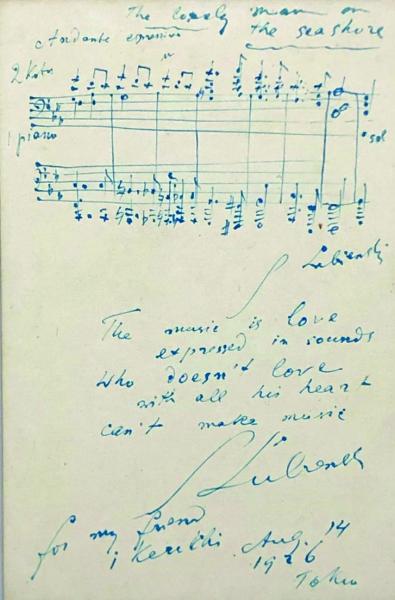 The lonely man on
the seashore
Andante espressivo
2 Koto
1 piano
sol
Lubienski
The music is love
expressed in sounds
Who doesn't love
with all his heart
can't make music
Lubienski
for my friend
Aug. 14
1926